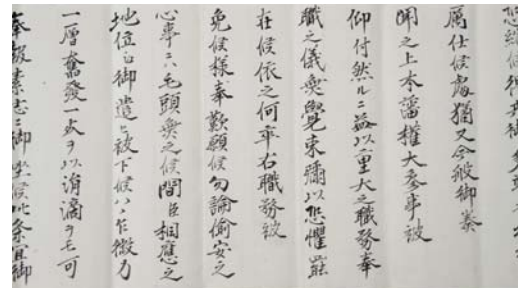 属仕候處猶又今般御奏
聞之上本藩權大参事被
仰付然ルニ益以重大之職務奉
職之儀無覺束彌以恐懼罷
在候依之何卒右職務被
免候様奉歎願候勿論偷安之
心事ニハ毛頭無之候間臣相應之
地位御遣被下候ハヽ乍微力
一層奮發一ヲ以涓滴ヲモ可
奉報素志ニ御坐候此条宜御